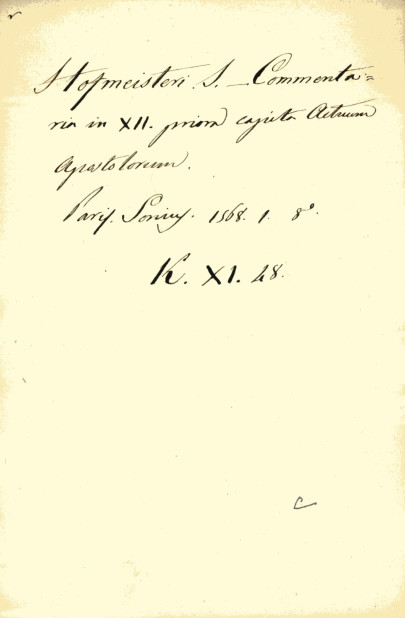 Hofmeisteri J. – Commenta=
ria in XII. priora capita Actuum
Apostolorum.
Paris. Sonius. 1568. 1. 8°.
K. XI. 48.
c